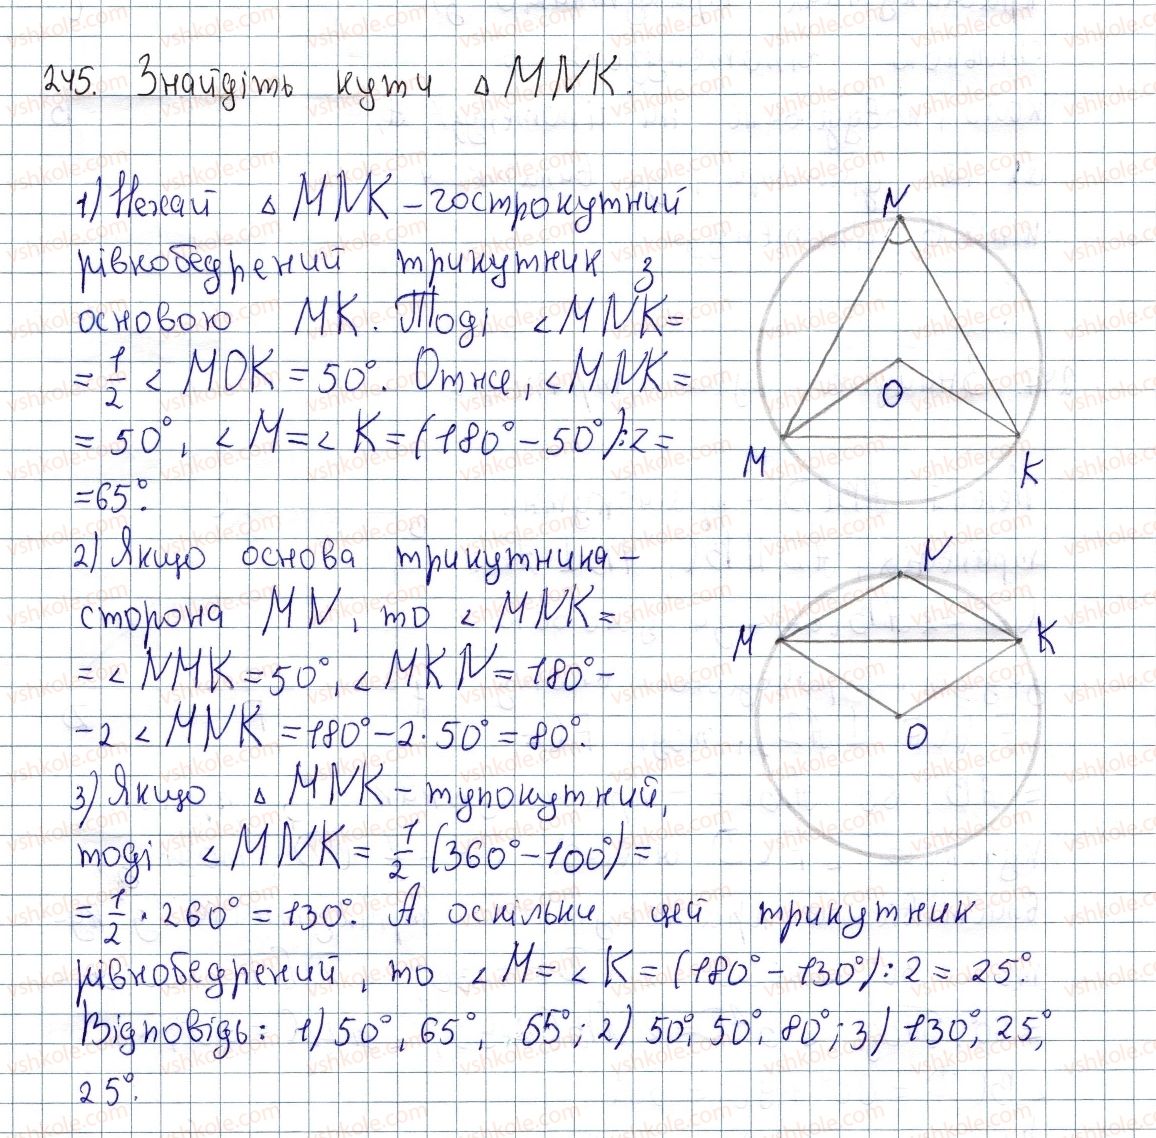 245. Знайдіть кути △MNK.
1) Нехай △MNK – гострокутний
рівнобедрений трикутник з
основою MK. Тоді ∠MNK =
= 1/2 ∠MOK = 50°. Отже, ∠MNK =
= 50°, ∠M = ∠K = (180° – 50°):2 =
= 65°.
2) Якщо основа трикутника –
сторона MN, то ∠MNK =
= ∠NMK = 50°, ∠MKN = 180° –
– 2∠MNK = 180° – 2·50° = 80°.
3) Якщо △MNK – тупокутний,
тоді ∠MNK = 1/2 (360° – 100°) =
= 1/2 · 260° = 130°. А оскільки цей трикутник
рівнобедрений, то ∠M = ∠K = (180° – 130°):2 = 25°.
Відповідь: 1) 50°, 65°, 65°; 2) 50°, 50°, 80°; 3) 130°, 25°,
25°.
N
O
M
K
N
M
K
O
vshkole.com